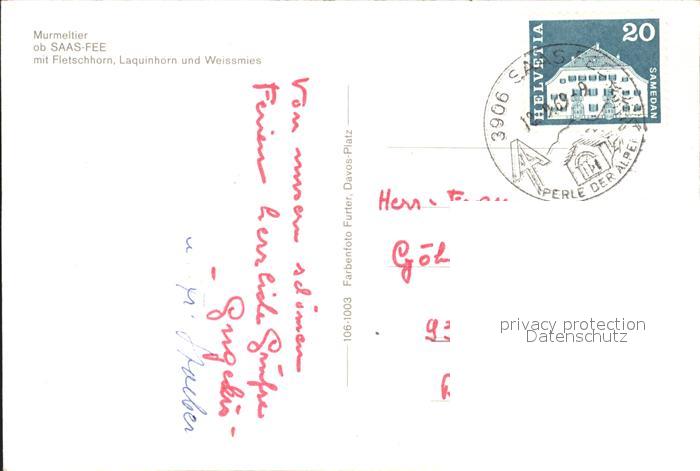 Murmeltier
ob SAAS-FEE
mit Fletschhorn, Laquinhorn und Weissmies
HELVETIA
20
SAMEDAN
3906 SAAS-
69-9
PERLE DER ALPEN
106-1003 Farbenfoto Furter, Davos-Platz
Von unsern schönen
Ferien herzliche Grüsse
Herr
Göh
privacy protection
Datenschutz